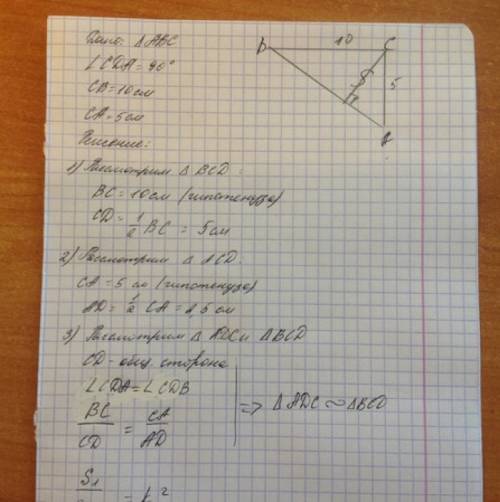 Дано: △ABC
∠CDA = 90°
CB = 10 см
CA = 5 см
Решение:
B 10 C
5
5
A
1) Рассмотрим △ BCD:
BC = 10 см (гипотенуза)
CD = 1/2 BC = 5 см
2) Рассмотрим △ ACD:
CA = 5 см (гипотенуза)
AD = 1/2 CA = 2,5 см
3) Рассмотрим △ ADC и △BCD
CD - общ сторона
∠CDA = ∠CDB
BC/CD = CA/AD
=> △ADC ∾ △BCD
S1
= k²